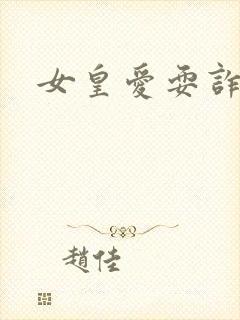 女皇愛耍詐
趙佳